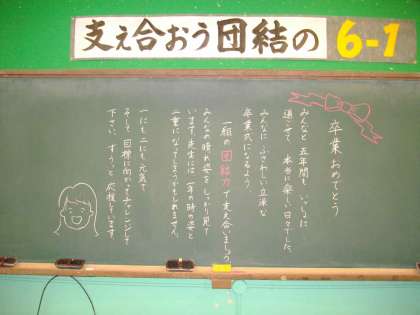 支え合おう団結の 6-1
卒業おめでとう
みんなと五年間も いっしょに
過ごせて、本当に楽しい日々でした。
みんなに ふさわしい立派な
卒業式になるよう
一組の団結力で支え合いましょう
みんなの晴れ姿をしっかり見て
います。先生には 一年の時の姿と
二重になってしまうかもしれません。
一にも二にも元気で
そして 目標に向かってチャレンジして
下さい。ずうっと 応援しています。